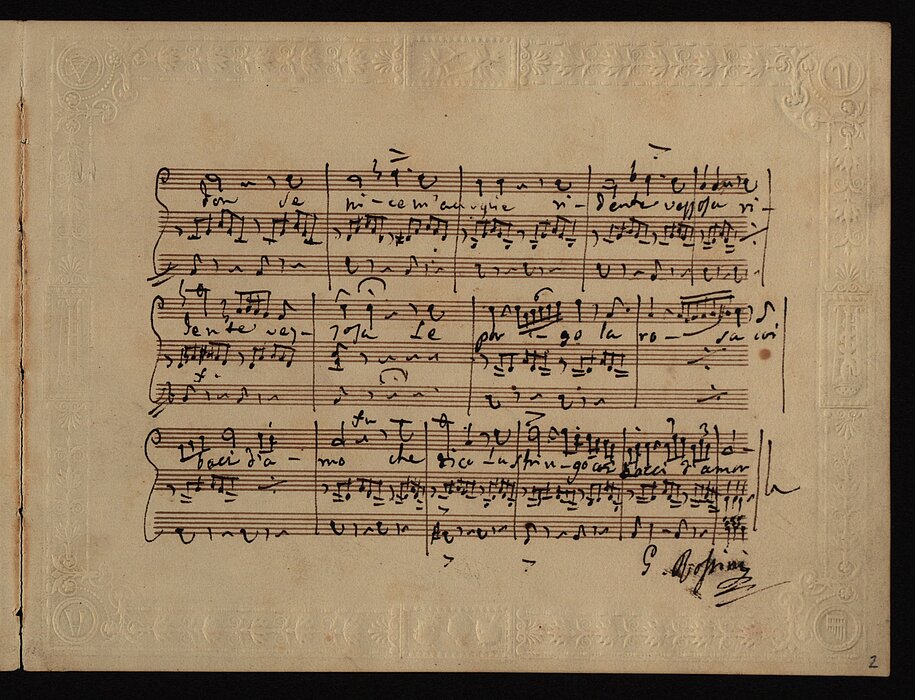 Se ni - ce m'accoglie ri - dente vezzosa ri -
dente vez - zosa Le por - go la ro - sa coi
baci d'a - mo che dico La strin - go coi baci d'amor
G. Rossini
2